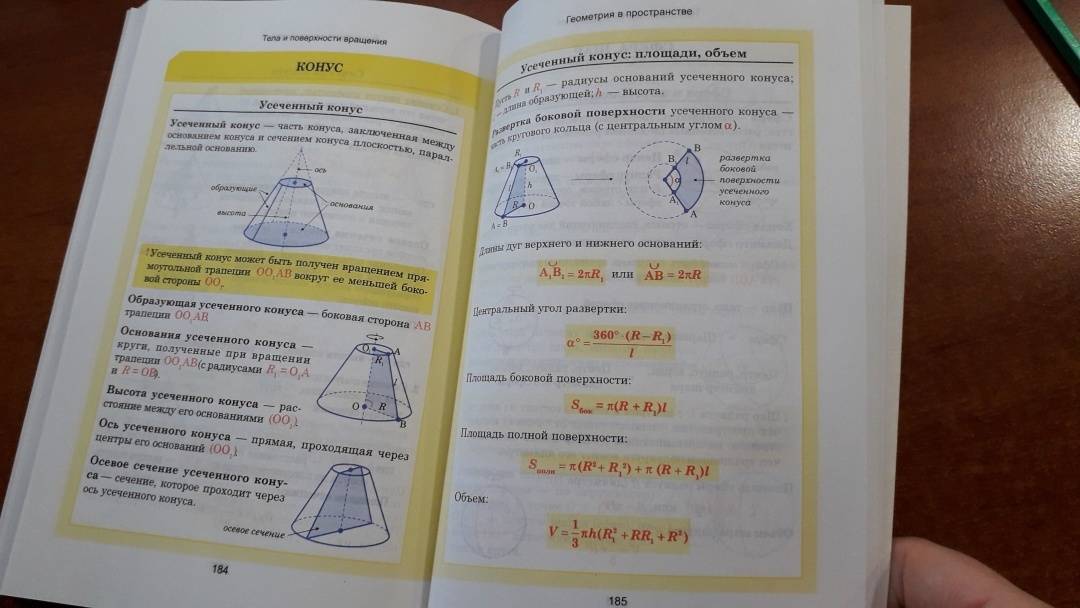 Тела и поверхности вращения
КОНУС
Усеченный конус
Усеченный конус — часть конуса, заключенная между
основанием конуса и сечением конуса плоскостью, парал-
лельной основанию.
ось
образующие
основания
высота
! Усеченный конус может быть получен вращением пря-
моугольной трапеции OO₁AB вокруг ее меньшей боко-
вой стороны OO₁.
Образующая усеченного конуса — боковая сторона AB
трапеции OO₁AB.
Основания усеченного конуса —
круги, полученные при вращении
трапеции OO₁AB (с радиусами R₁ = O₁A
и R = OB).
O₁
A
R₁
l
O
R
B
Высота усеченного конуса — рас-
стояние между его основаниями (OO₁).
Ось усеченного конуса — прямая, проходящая через
центры его оснований (OO₁).
Осевое сечение усеченного кону-
са — сечение, которое проходит через
ось усеченного конуса.
осевое сечение
184
Геометрия в пространстве
Усеченный конус: площади, объем
Пусть R и R₁ — радиусы оснований усеченного конуса;
— длина образующей; h — высота.
Развертка боковой поверхности усеченного конуса —
часть кругового кольца (с центральным углом α).
R₁
A₁ = B₁
O₁
l
h
R
O
A = B
B
B₁
l
α
A₁
A
развертка
боковой
поверхности
усеченного
конуса
Длины дуг верхнего и нижнего оснований:
A₁B₁ = 2πR₁ или AB = 2πR
Центральный угол развертки:
α° = 360° · (R − R₁) / l
Площадь боковой поверхности:
Sбок = π(R + R₁)l
Площадь полной поверхности:
Sполн = π(R² + R₁²) + π(R + R₁)l
Объем:
V = 1/3 πh(R₁² + RR₁ + R²)
185